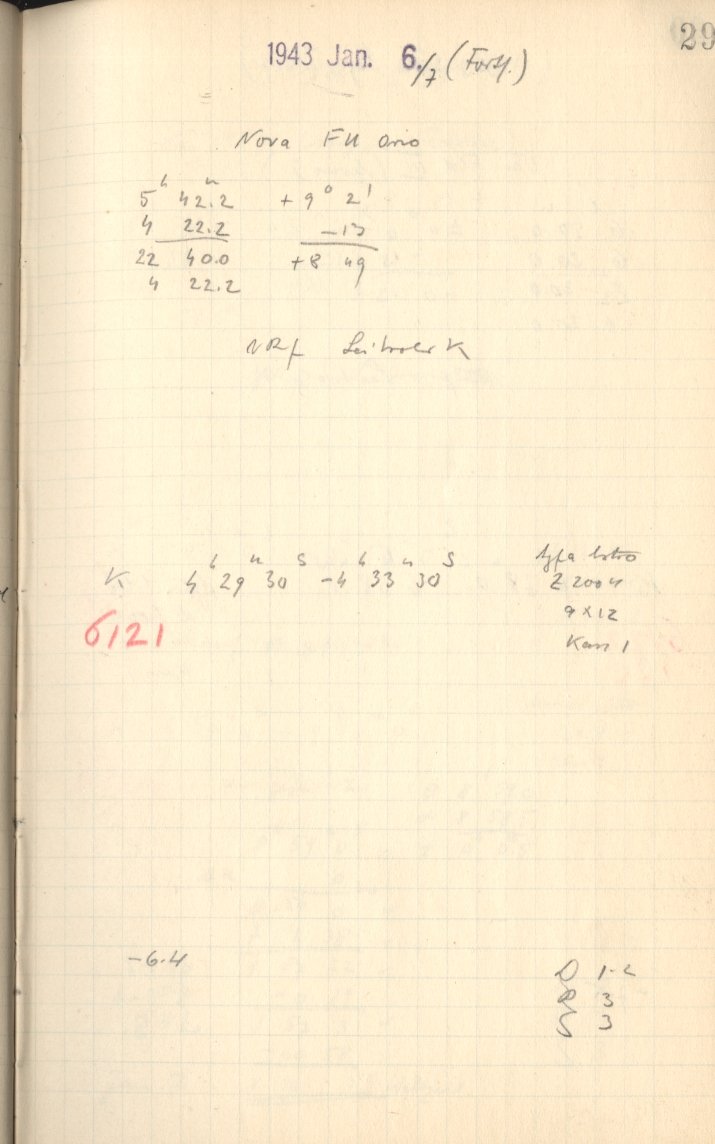 29
1943 Jan. 6./7 (Forts.)
Nova FU Orio
5h 42m.2 + 9° 2'
4 22.2 - 13
22 40.0 + 8 49
4 22.2
K 4h 29m 30s - 4h 33m 30s
Agfa Astro
Z 2004
9 x 12
Kass 1
6121
-6.4
D 1-2
R 3
3